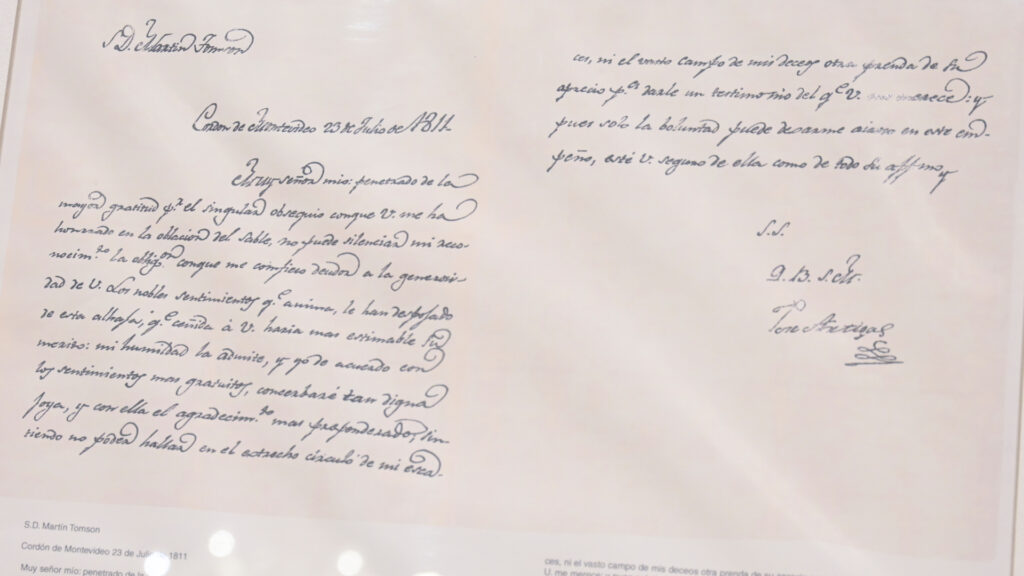 S.D. Martin Tomson
Cordon de Montevideo 23 de Julio de 1811
Muy señor mio: penetrado de la
mayor gratitud p.r el singular obsequio conque V. me ha
honrrado en la ollacion del sable, no puede silenciar mi reco-
nocim.to la oblig.on conque me confieso deudor a la generosi-
dad de V. Los nobles sentimientos q.e anima, le han despojado
de esta alhaja, q.e ceñida á V. haria mas estimable su
merito: mi humildad la admite, y yo de acuerdo con
los sentimientos mas gratuitos, concerbaré tan digna
joya, y con ella el agradecim.to mas preponderado, sin-
tiendo no poder hallar en el estrecho circulo de mi esca-
ces, ni el vasto campo de mis deceos otra prenda de su
aprecio p.a darle un testimonio del q.e V. merece: y
pues solo la boluntad puede dexarme airoso en este em-
peño, esté V. seguro de ella como de todo su affmo y
S.S.
Q.B.S.M.
Jose Artigas
S.D. Martín Tomson
Cordón de Montevideo 23 de Julio 1811
Muy señor mío: penetrado de
ces, ni el vasto campo de mis deceos otra prenda de su
U. me merece: y